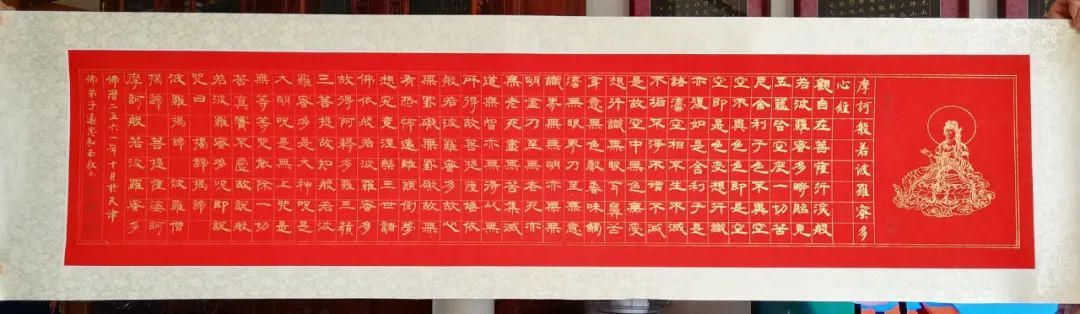 摩訶般若波羅蜜多
心經
觀自在菩薩行深般
若波羅蜜多時照見
五蘊皆空度一切苦
厄舍利子色不異空
空不異色色即是空
空即是色受想行識
亦復如是舍利子是
諸灋空相不生不滅
不垢不淨不增不減
是故空中無色無受
想行識無眼耳鼻舌
身意無色聲香味觸
灋無眼界乃至無意
識界無無明亦無無
明盡乃至無老死亦
無老死盡無苦集滅
道無智亦無得以無
所得故菩提薩埵依
般若波羅蜜多故心
無罣礙無罣礙故無
有恐怖遠離顛倒夢
想究竟涅槃三世諸
佛依般若波羅蜜多
故得阿耨多羅三藐
三菩提故知般若波
羅蜜多是大神咒是
大明咒是無上咒是
無等等咒能除一切
苦真實不虛故說般
若波羅蜜多咒即說
咒曰 揭諦揭諦
波羅揭諦 波羅僧
揭諦 菩提薩婆訶
摩訶般若波羅蜜多
佛曆二五六二年十月於天津
佛弟子